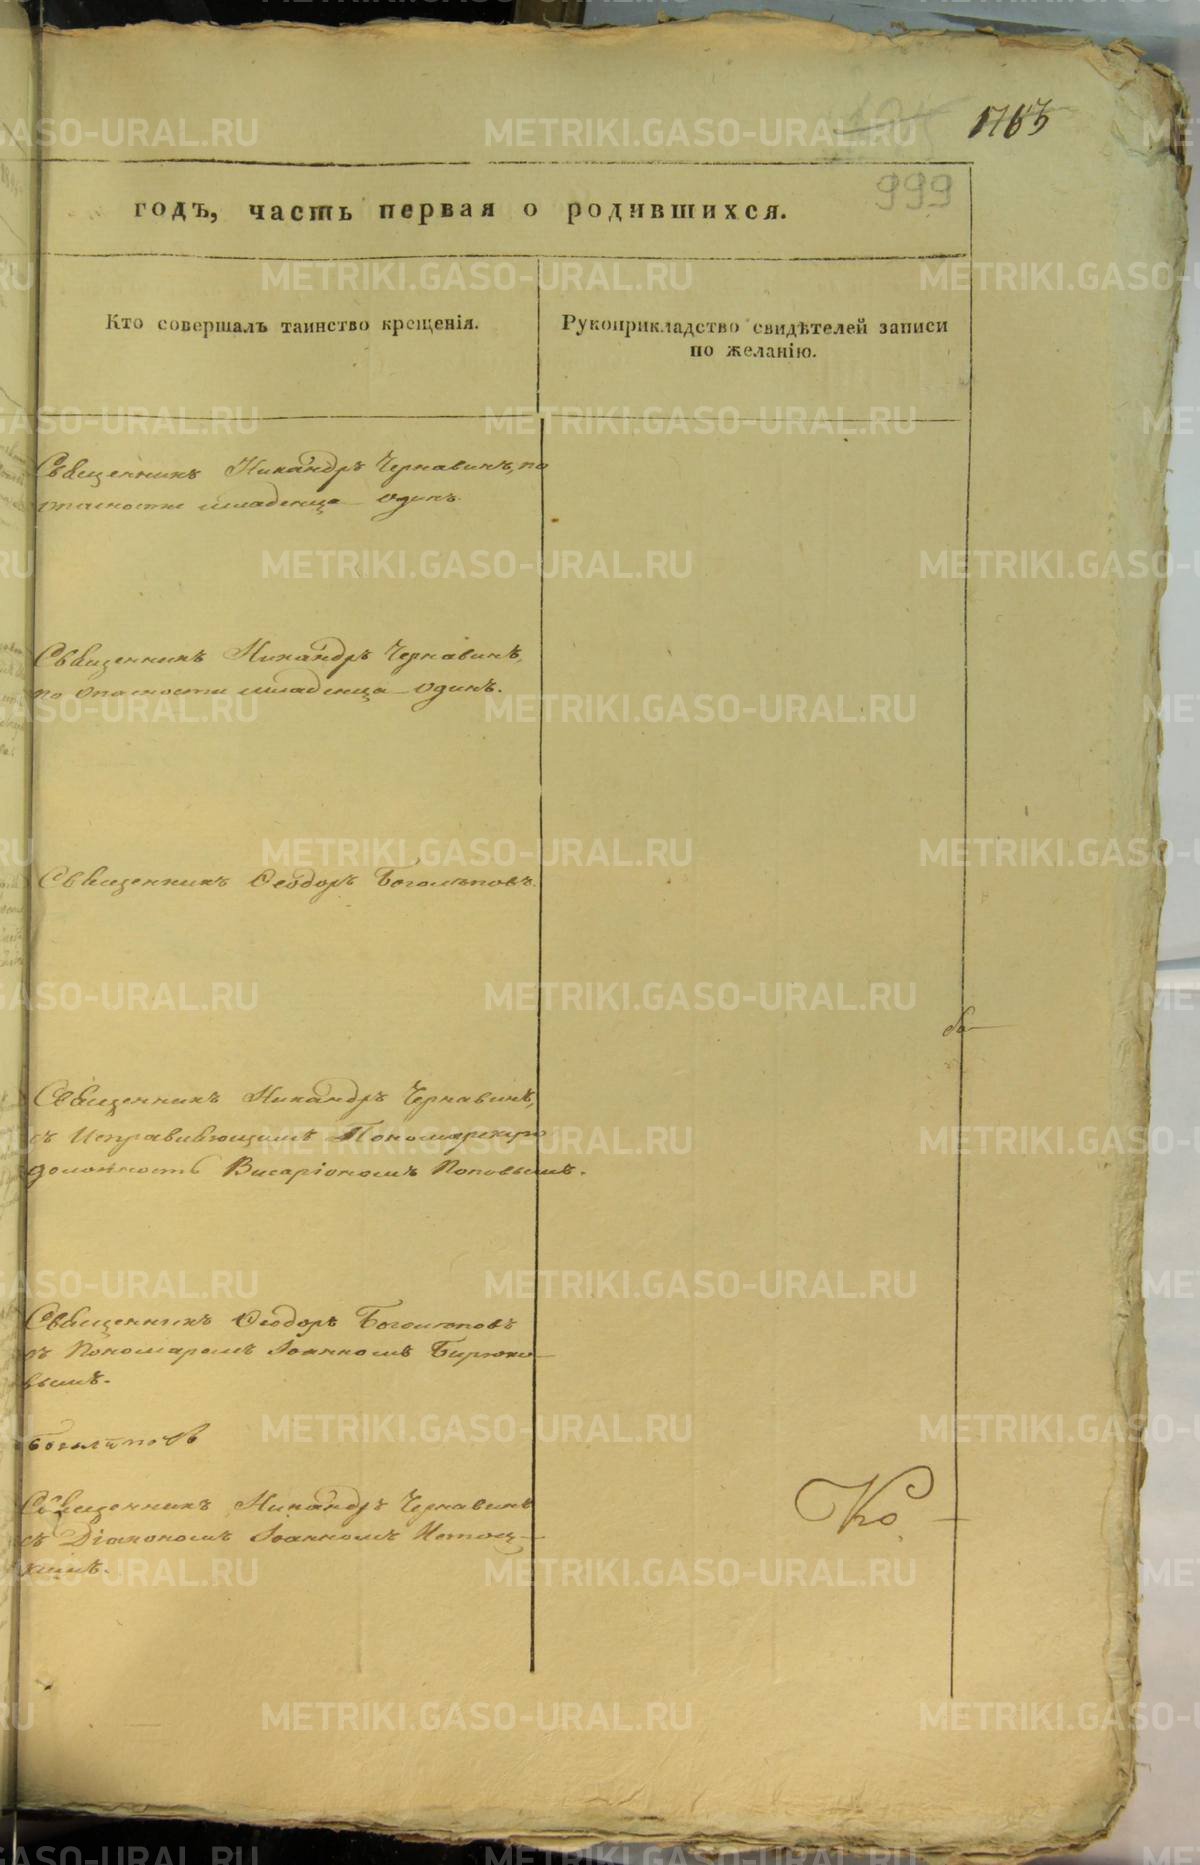 1763
999
годъ, часть первая о родившихся.
Кто совершалъ таинство крещенія.
Рукоприкладство свидѣтелей записи
по желанію.
Священникъ Никандръ Чернавинъ, по
опасности младенца один.
Священникъ Никандръ Чернавинъ,
по опасности младенца один.
Священникъ Ѳеодоръ Боголѣповъ.
Священникъ Никандръ Чернавинъ,
съ Исправляющимъ Пономарскую
должность Висаріономъ Поповымъ.
Священникъ Ѳеодоръ Боголѣповъ
съ Пономаремъ Іоанномъ Бирюко-
вымъ.
Боголѣповъ
Священникъ Никандръ Чернавинъ
съ Діакономъ Іоанномъ
Ко
METRIKI.GASO-URAL.RU